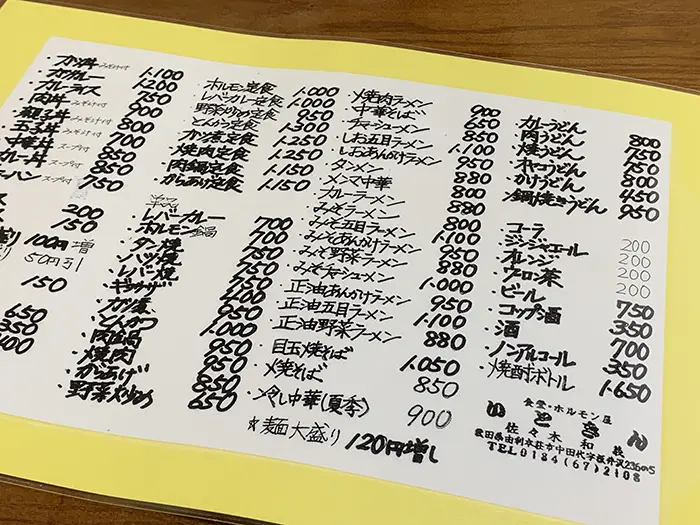 ・カツ丼 みそ汁付 1.100
・カツカレー 1.200
・カレーライス 750
・肉丼 みそ汁付 900
・親子丼 みそ汁付 800
・玉子丼 みそ汁付 700
・中華丼 スープ付 850
カレー丼 スープ付 850
ーハン スープ付 750
ス 200
150
り 100円増
り 50円引
150
650
350
400
・ホルモン定食 1.000
・レバーカレー定食 1.000
・野菜炒め定食 950
・とんかつ定食 1.300
・カツ煮定食 1.250
・焼肉定食 1.250
・肉鍋定食 1.150
・からあげ定食 1.150
・レバーカレー 700
・ホルモン鍋 700
・タン焼 750
・ハツ焼 750
・レバー焼 750
・ギョウザ 400
・カツ煮 950
・とんかつ 1.000
・肉鍋 950
・焼肉 950
・からあげ 850
・野菜炒め 650
・焼肉ラーメン 900
・中華そば 650
・チャーシューメン 850
・しお五目ラーメン 1.100
・しおあんかけラーメン 950
・タンメン 880
・メンマ中華 800
・カレーラーメン 880
・みそラーメン 800
・みそ五目ラーメン 1.100
・みそあんかけラーメン 950
・みそ野菜ラーメン 880
・みそチャーシューメン 1.000
・正油あんかけラーメン 950
・正油五目ラーメン 1.100
・正油野菜ラーメン 880
・目玉焼そば 1.050
・焼そば 850
・冷し中華(夏季) 900
☆麺大盛り 120円増し
・カレーうどん 800
・肉うどん 750
・焼うどん 750
・オヤコうどん 800
・かけうどん 450
・鍋焼きうどん 950
・コーラ 200
・ジンジャエール 200
・オレンジ 200
・ウーロン茶 200
・ビール 750
・コップ酒 350
・酒 700
・ノンアルコール 350
・焼酎ボトル 1.650
食堂・ホルモン屋
佐々木 和
秋田県由利本荘市中田代字板井沢236の5
TEL0184(67)2108